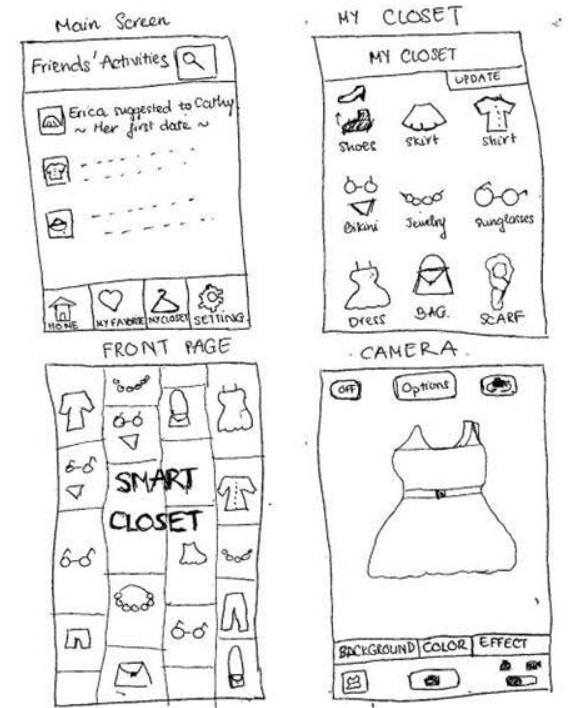 Main Screen
Friends' Activities
Erica suggested to Cathy
~ Her first date ~
HOME
MY FAVORITE
MY CLOSET
SETTING
MY CLOSET
MY CLOSET
UPDATE
Shoes
Skirt
Shirt
Bikini
Jewelry
Sunglasses
Dress
BAG.
SCARF
FRONT PAGE
SMART
CLOSET
CAMERA.
OFF
Options
BACKGROUND
COLOR
EFFECT